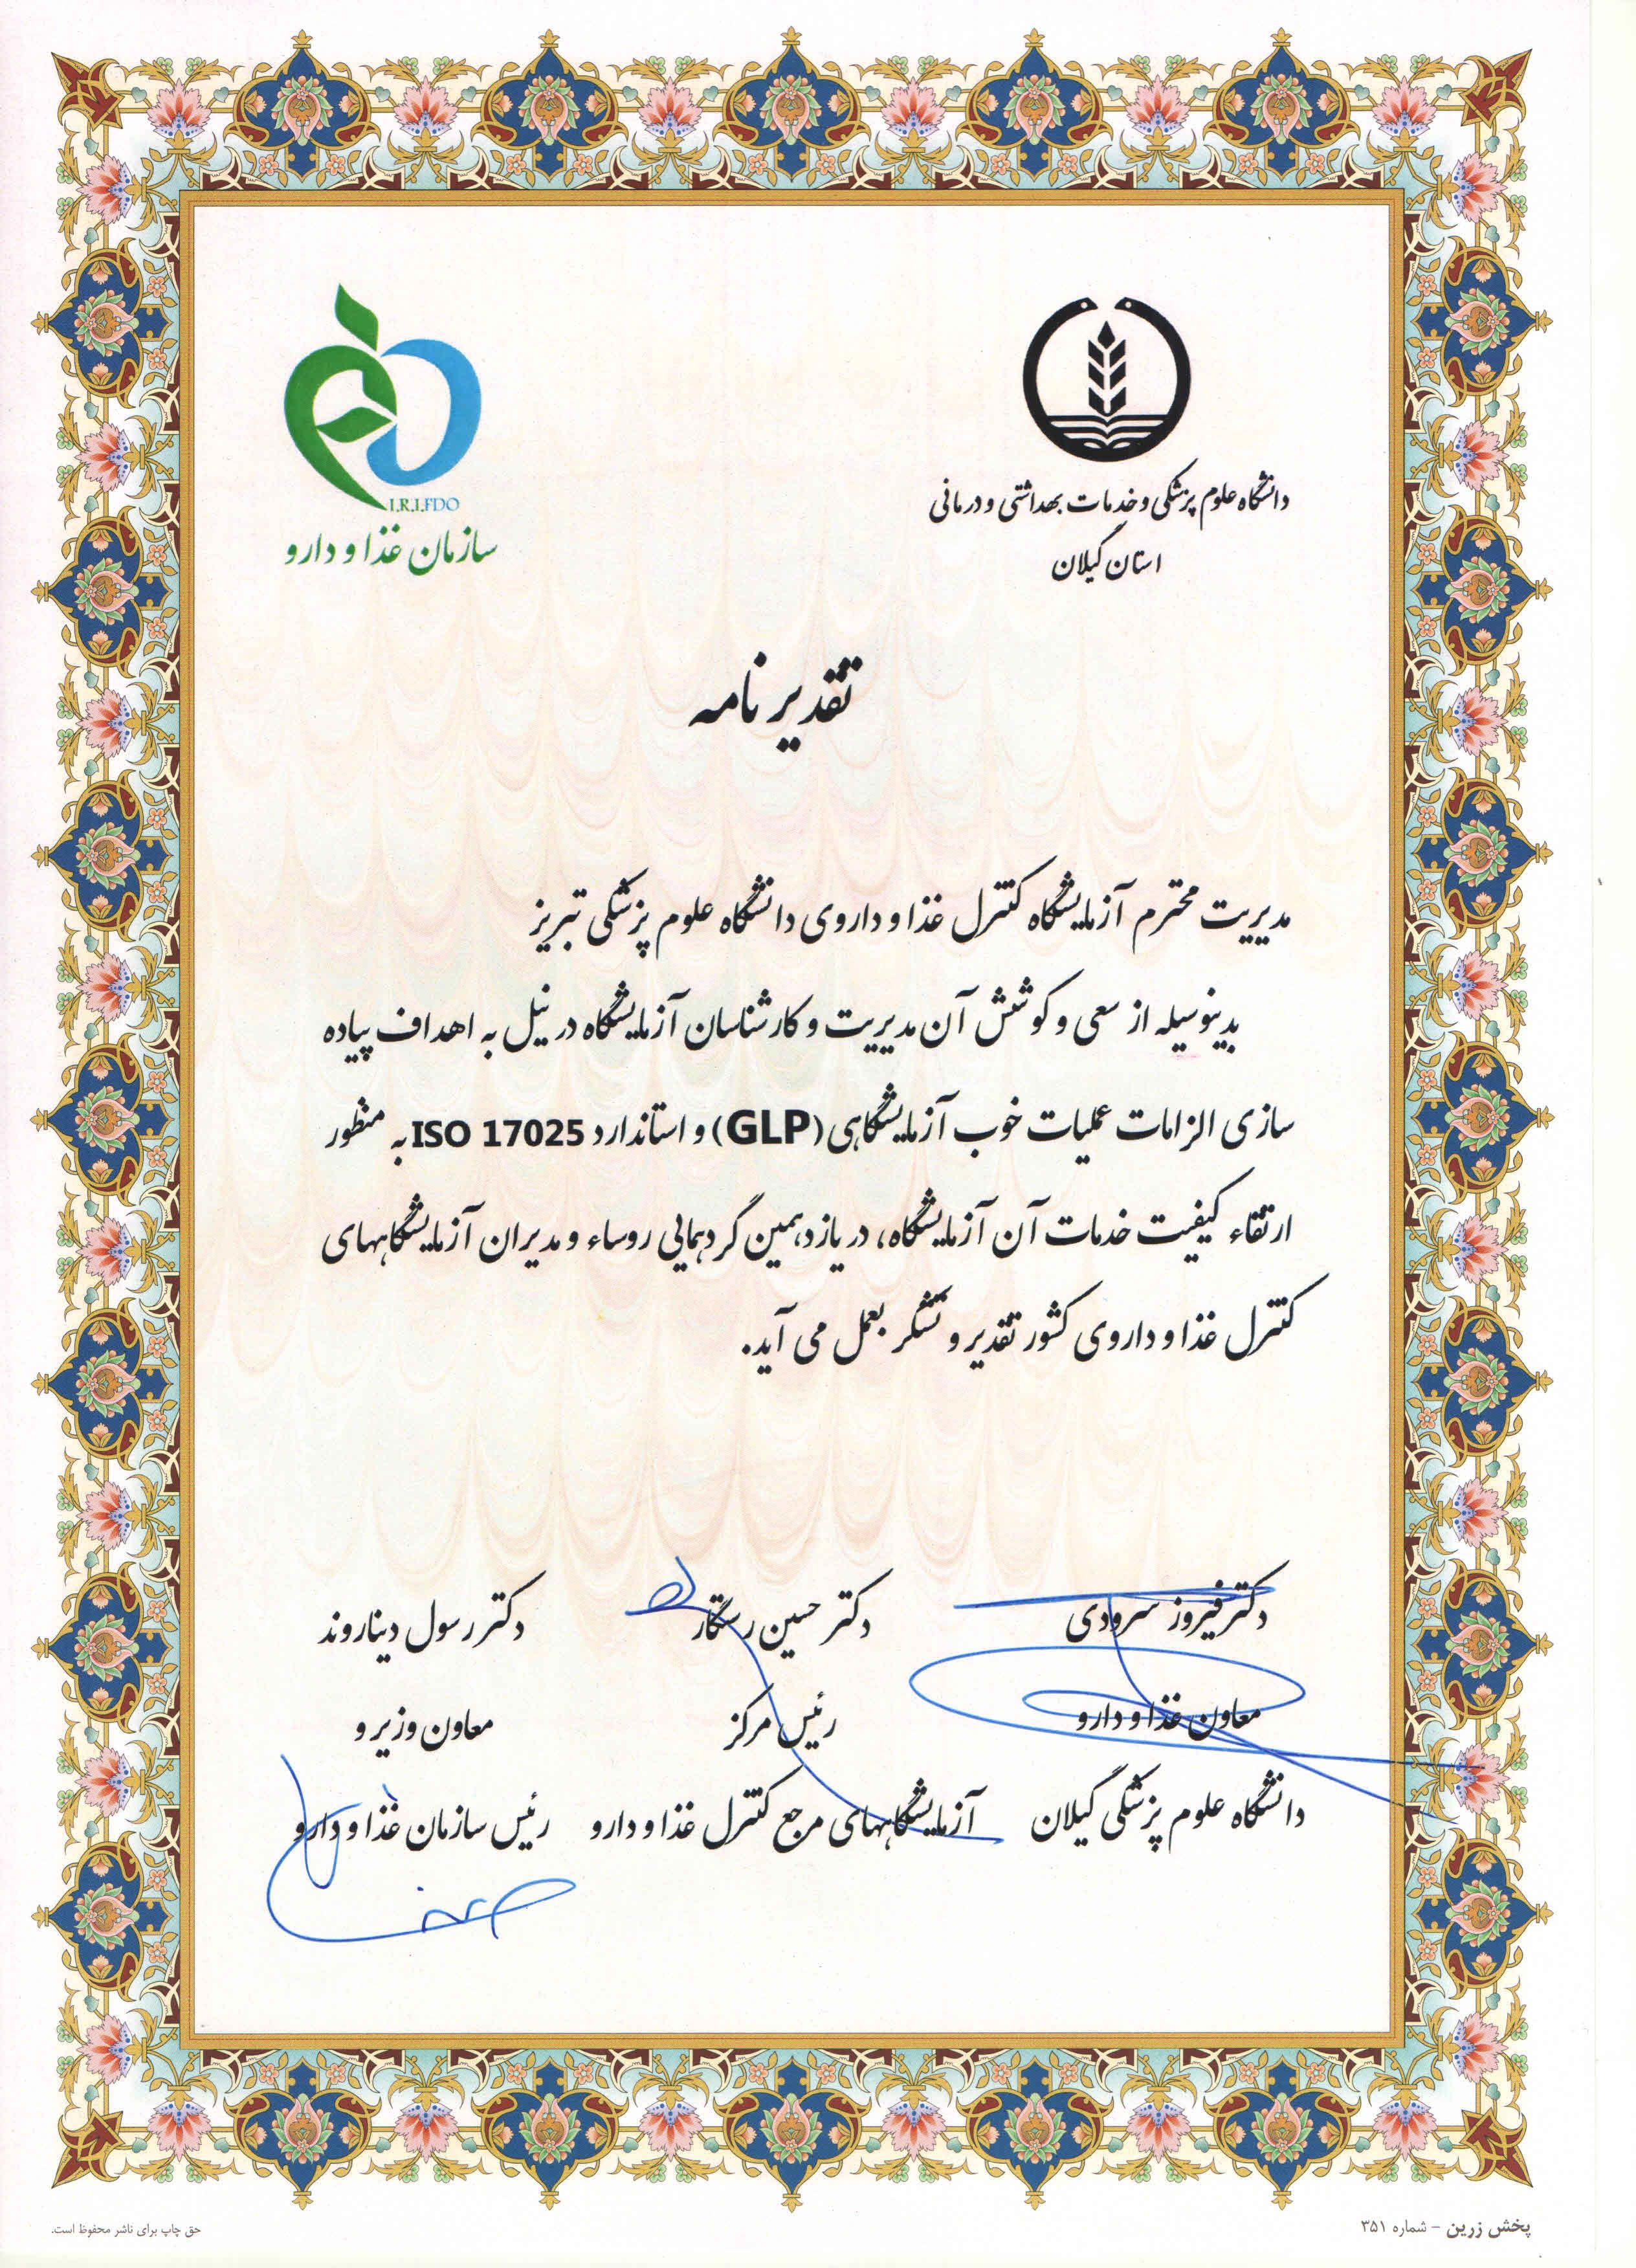 دانشگاه علوم پزشکی و خدمات بهداشتی و درمانی
استان گیلان
I.R.I.FDO
سازمان غذا و دارو
تقدیر نامه
مدیریت محترم آزمایشگاه کنترل غذا و داروی دانشگاه علوم پزشکی تبریز
بدینوسیله از سعی و کوشش آن مدیریت و کارشناسان آزمایشگاه در نیل به اهداف پیاده
سازی الزامات عملیات خوب آزمایشگاهی (GLP) و استاندارد ISO 17025 به منظور
ارتقاء کیفیت خدمات آن آزمایشگاه، در یازدهمین گردهمایی روساء و مدیران آزمایشگاههای
کنترل غذا و داروی کشور تقدیر و تشکر بعمل می آید.
دکتر فیروز سرودی
معاون غذا و دارو
دانشگاه علوم پزشکی گیلان
دکتر حسین رستگار
رئیس مرکز
آزمایشگاههای مرجع کنترل غذا و دارو
دکتر رسول دیناروند
معاون وزیر و
رئیس سازمان غذا و دارو
پخش زرین - شماره ۳۵۱
حق چاپ برای ناشر محفوظ است.